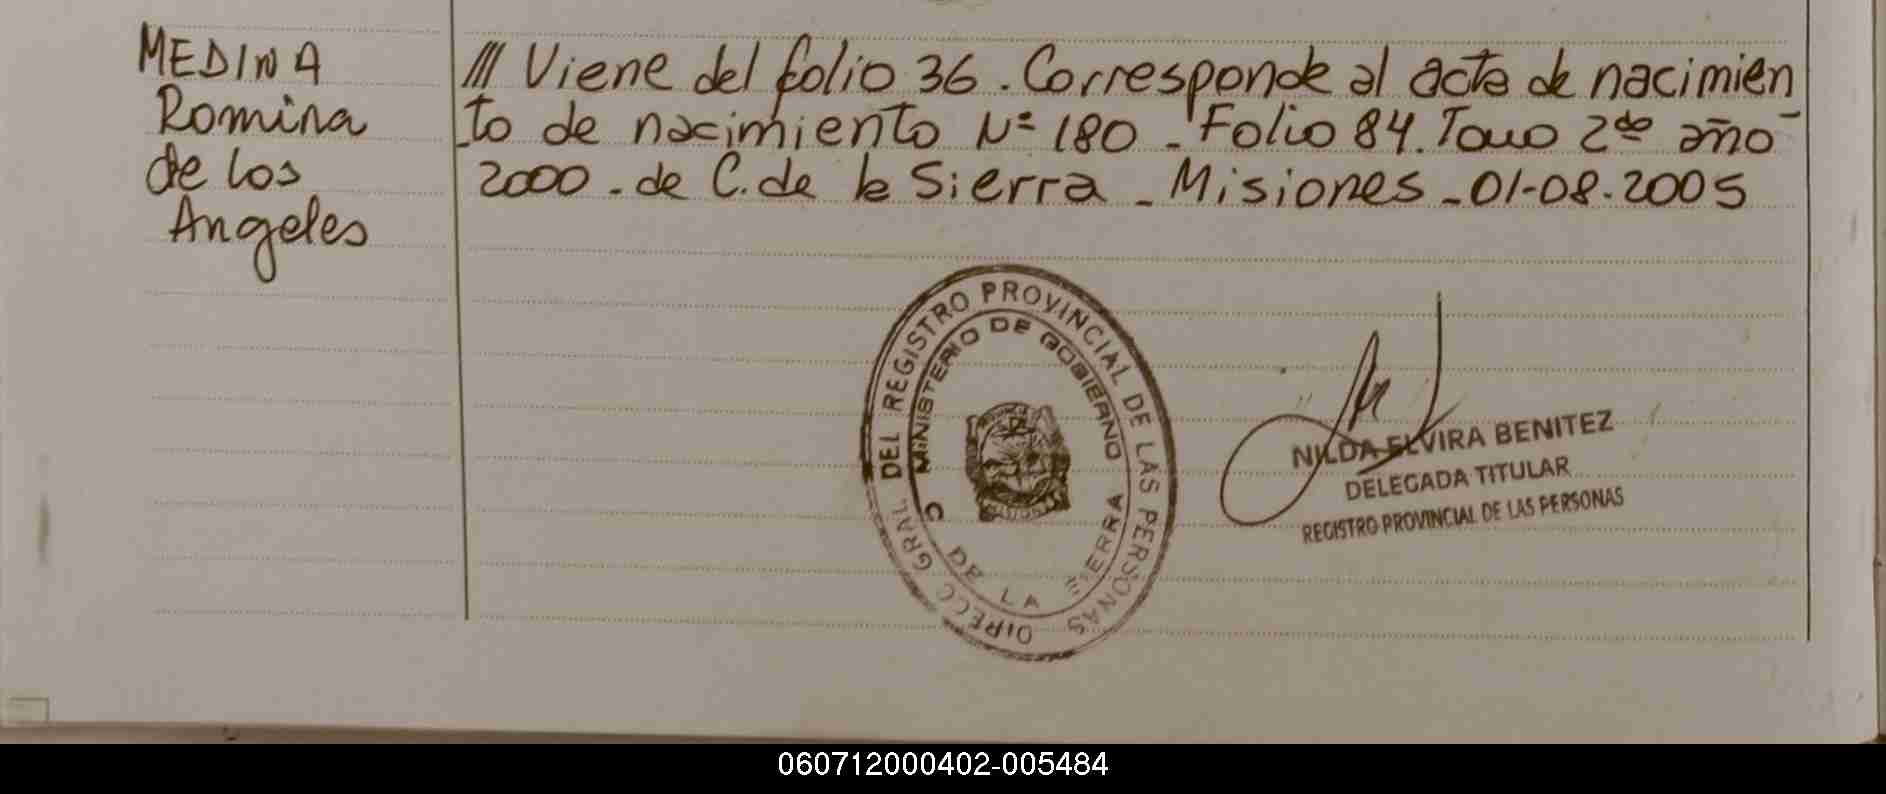 MEDINA
Romina
de los
Angeles
/// Viene del folio 36. Corresponde al acta de nacimien
to de nacimiento Nº 180 - Folio 84. Tomo 2do año
2000 - de C. de la Sierra - Misiones - 01-08-2005
DIRECC GRAL DEL REGISTRO PROVINCIAL DE LAS PERSONAS
MINISTERIO DE GOBIERNO
C DE LA SIERRA
NILDA ELVIRA BENITEZ
DELEGADA TITULAR
REGISTRO PROVINCIAL DE LAS PERSONAS
060712000402-005484